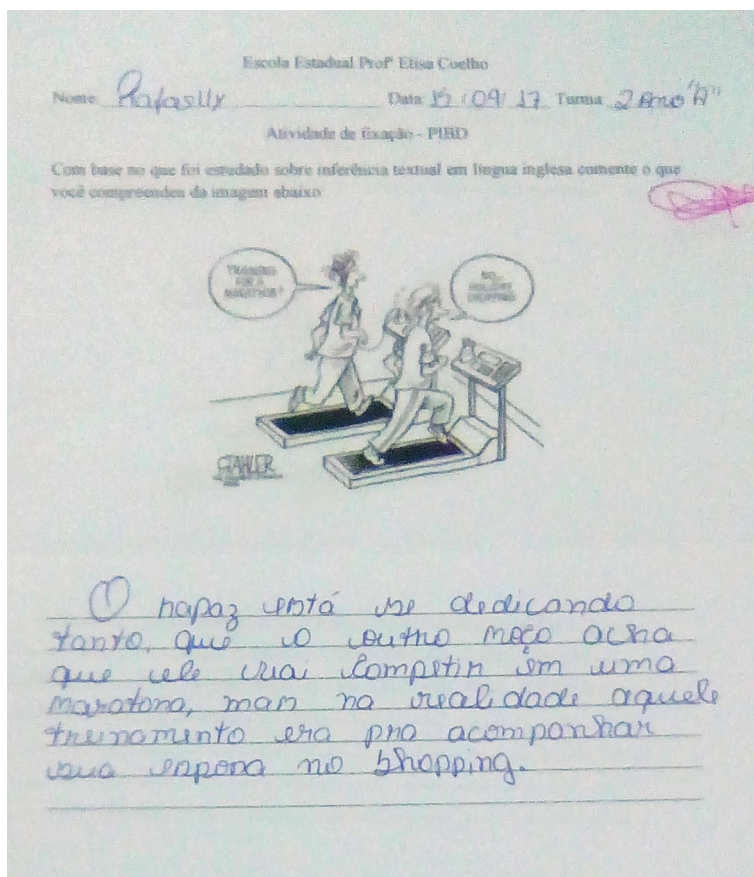 Escola Estadual Profª Elisa Coelho
Nome: Rafaelly Data: 15/09/17 Turma: 2 Ano "A"
Atividade de fixação - PIBID
Com base no que foi estudado sobre inferência textual em língua inglesa comente o que
você compreendeu da imagem abaixo:
TRAINING
FOR A
MARATHON?
NO...
HOLIDAY
SHOPPING
STAHLER
O rapaz está se dedicando
tanto, que o outro moço acha
que ele vai competir em uma
maratona, mas na realidade aquele
treinamento era pra acompanhar
sua esposa no shopping.